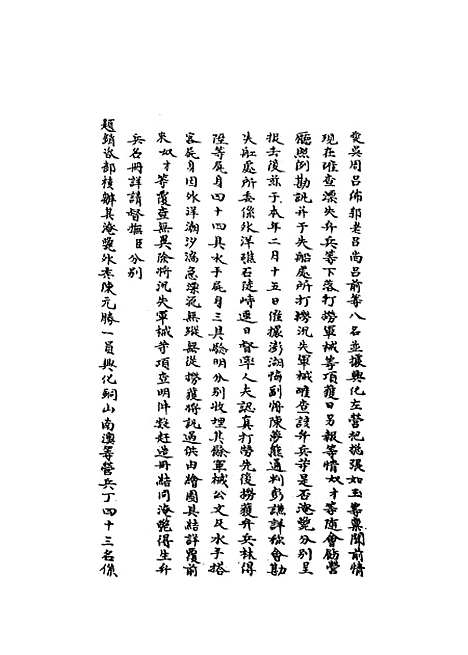 奕吳周呂佈郭老呂尚呂前等八名並據興化左營把總張如玉等稟聞前情
現在確查漂失弁兵等下落打撈軍械等項獲日另報等情奴才等隨會飭營
廳照例勘訊并于失船處所打撈沉失軍械確查該弁兵等是否淹斃分別呈
報去後茲于本年二月十五日催據澎湖協副將陳夢熊通判彭謙詳稱會勘
失舡處所委係外洋礁石陡峙連日督率人夫認真打撈先後撈獲弁兵林得
陞等屍身四十四具水手屍身三具驗明分別收埋其餘軍械公文及水手搭
客屍身因外洋潮汐湍急漂蕩無蹤無從撈獲將訊過供由繪圖具結詳覆前
來奴才等覆查無異除將沉失軍械等項查明件數趕造冊結同淹斃得生弁
兵名冊詳請督撫臣分別
題銷咨部核辦其淹斃外委陳元勝一員興化銅山南澳等營兵丁四十三名係